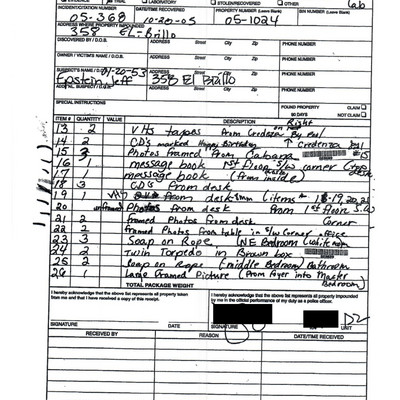 EVIDENCE IMPOUNDED TRIAL LABORATORY STOLEN/RECOVERED OTHER Lab
INCIDENT/CITATION NUMBER DATE/TIME RECOVERED PROPERTY NUMBER (Leave Blank) BIN NUMBER (Leave Blank)
05-368 10-20-05 05-1024
ADDRESS WHERE PROPERTY IMPOUNDED
358 EL-Brillo
DISCOVERED BY / D.O.B. ADDRESS Street City Zip PHONE NUMBER
OWNER / VICTIM'S NAME / D.O.B. ADDRESS Street City Zip PHONE NUMBER
SUSPECT'S NAME / D.O.B. 01-20-53 ADDRESS Street City Zip PHONE NUMBER
Epstein, Jeff 358 El Brillo
ADDITIONAL SUSPECT / D.O.B. ADDRESS Street City Zip PHONE NUMBER
SPECIAL INSTRUCTIONS FOUND PROPERTY CLAIM
90 DAYS NOT CLAIM
ITEM # QUANTITY VALUE DESCRIPTION Right
13 2 VHS tapes from Credenza By
14 2 CD's marked Happy Birthday ↑ Credenza
15 3 Photos framed from Cabana #15
16 1 message book 1st Floor S/W corner
17 1 message book (from inside) desk
18 3 CD's from desk
19 1 from desk items # 18-19, 20, 21
20 Photos from desk from 1st Floor S.W.
21 2 framed Photos from desk Corner
22 2 framed Photos from table in S/W Corner office
23 3 Soap on Rope NE Bedroom
24 2 Twin Torpedo in Brown box
25 2 Soap on Rope (middle Bedroom) Bathroom
26 1 Large framed Picture (from foyer into Master
TOTAL PACKAGE WEIGHT Bedroom)
I hereby acknowledge that the above list represents all property taken from me and that I have received a copy of this receipt.
I hereby acknowledge that the above list represents all property impounded by me in the official performance of my duty as a police officer.
SIGNATURE SIGNATURE UNIT
RECEIVED BY DATE REASON DATE/TIME RECEIVED